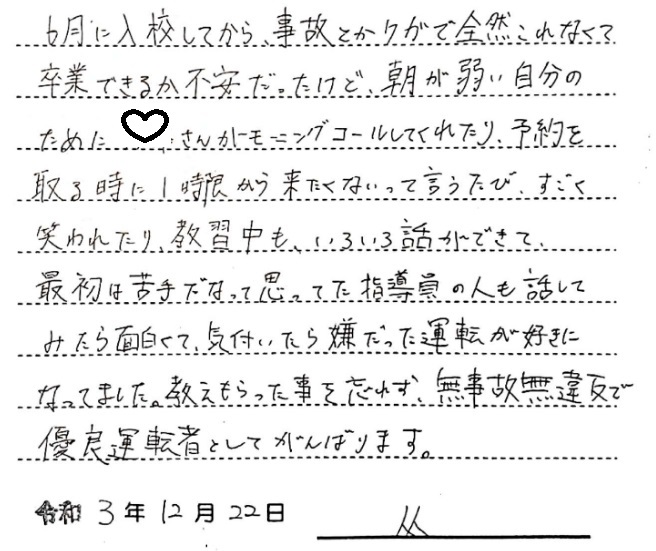 6月に入校してから、事故とかケガで全然これなくて
卒業できるか不安だったけど、朝が弱い自分の
ために さんがモーニングコールしてくれたり、予約を
取る時に1時限から来たくないって言うたび、すごく
笑われたり、教習中も、いろいろ話ができて、
最初は苦手だなって思ってた指導員の人も話して
みたら面白くて、気付いたら嫌だった運転が好きに
なってました。教えもらった事を忘れず、無事故無違反で
優良運転者としてがんばります。
令和 3年 12月 22日